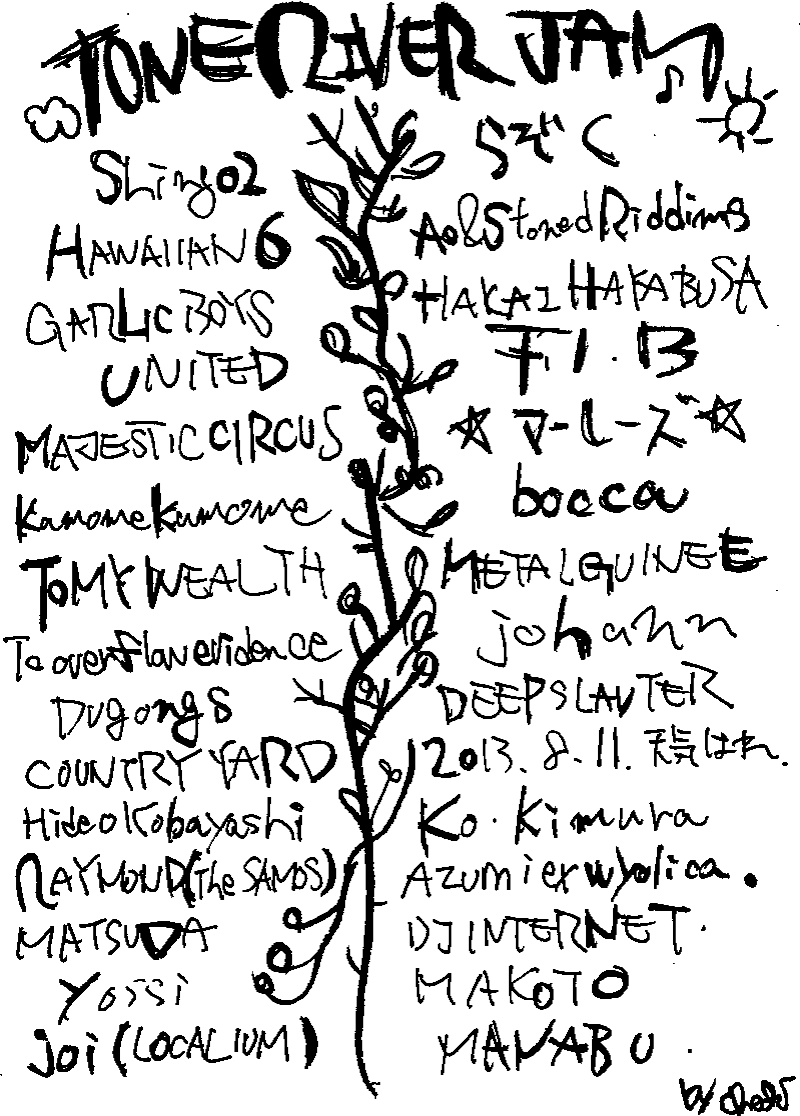 TONE RIVER JAM
Shing02
HAWAIIAN 6
GARLIC BOYS
UNITED
MAJESTIC CIRCUS
Kamome Kamome
TOMY WEALTH
To overflow evidence
Dugongs
COUNTRY YARD
Hideo Kobayashi
RAYMOND (The SAMOS)
MATSUDA
Yossi
joi (LOCALIUM)
らぞく
Ao&Stoned Riddims
HAKAI HAKABUSA
F.I.B
☆マーレーズ☆
bocca
METALGUINEE
johann
DEEPSLAUTER
2013.8.11.天気はれ.
Ko・Kimura
Azumi ex wyolica.
DJ INTERNET.
MAKOTO
MANABU.
by